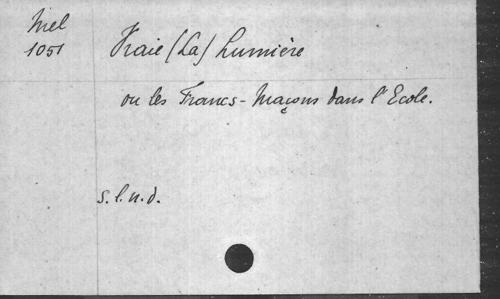 Mel
1051
Vraie (La) Lumière
ou les Francs-Maçons dans l'Ecole.
s.l.n.d.